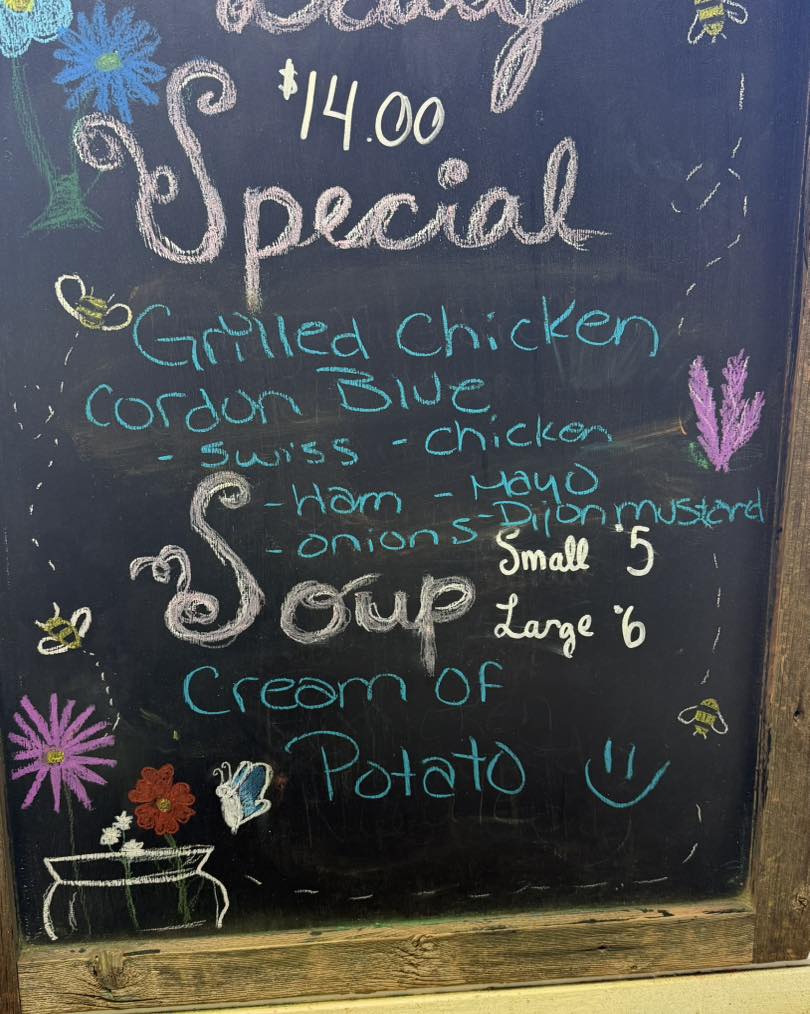 Daily
$14.00
Special
Grilled Chicken
Cordon Blue
- swiss - chicken
- Ham - Mayo
- onions - Dijon mustard
Soup
Small $5
Large $6
Cream of
Potato